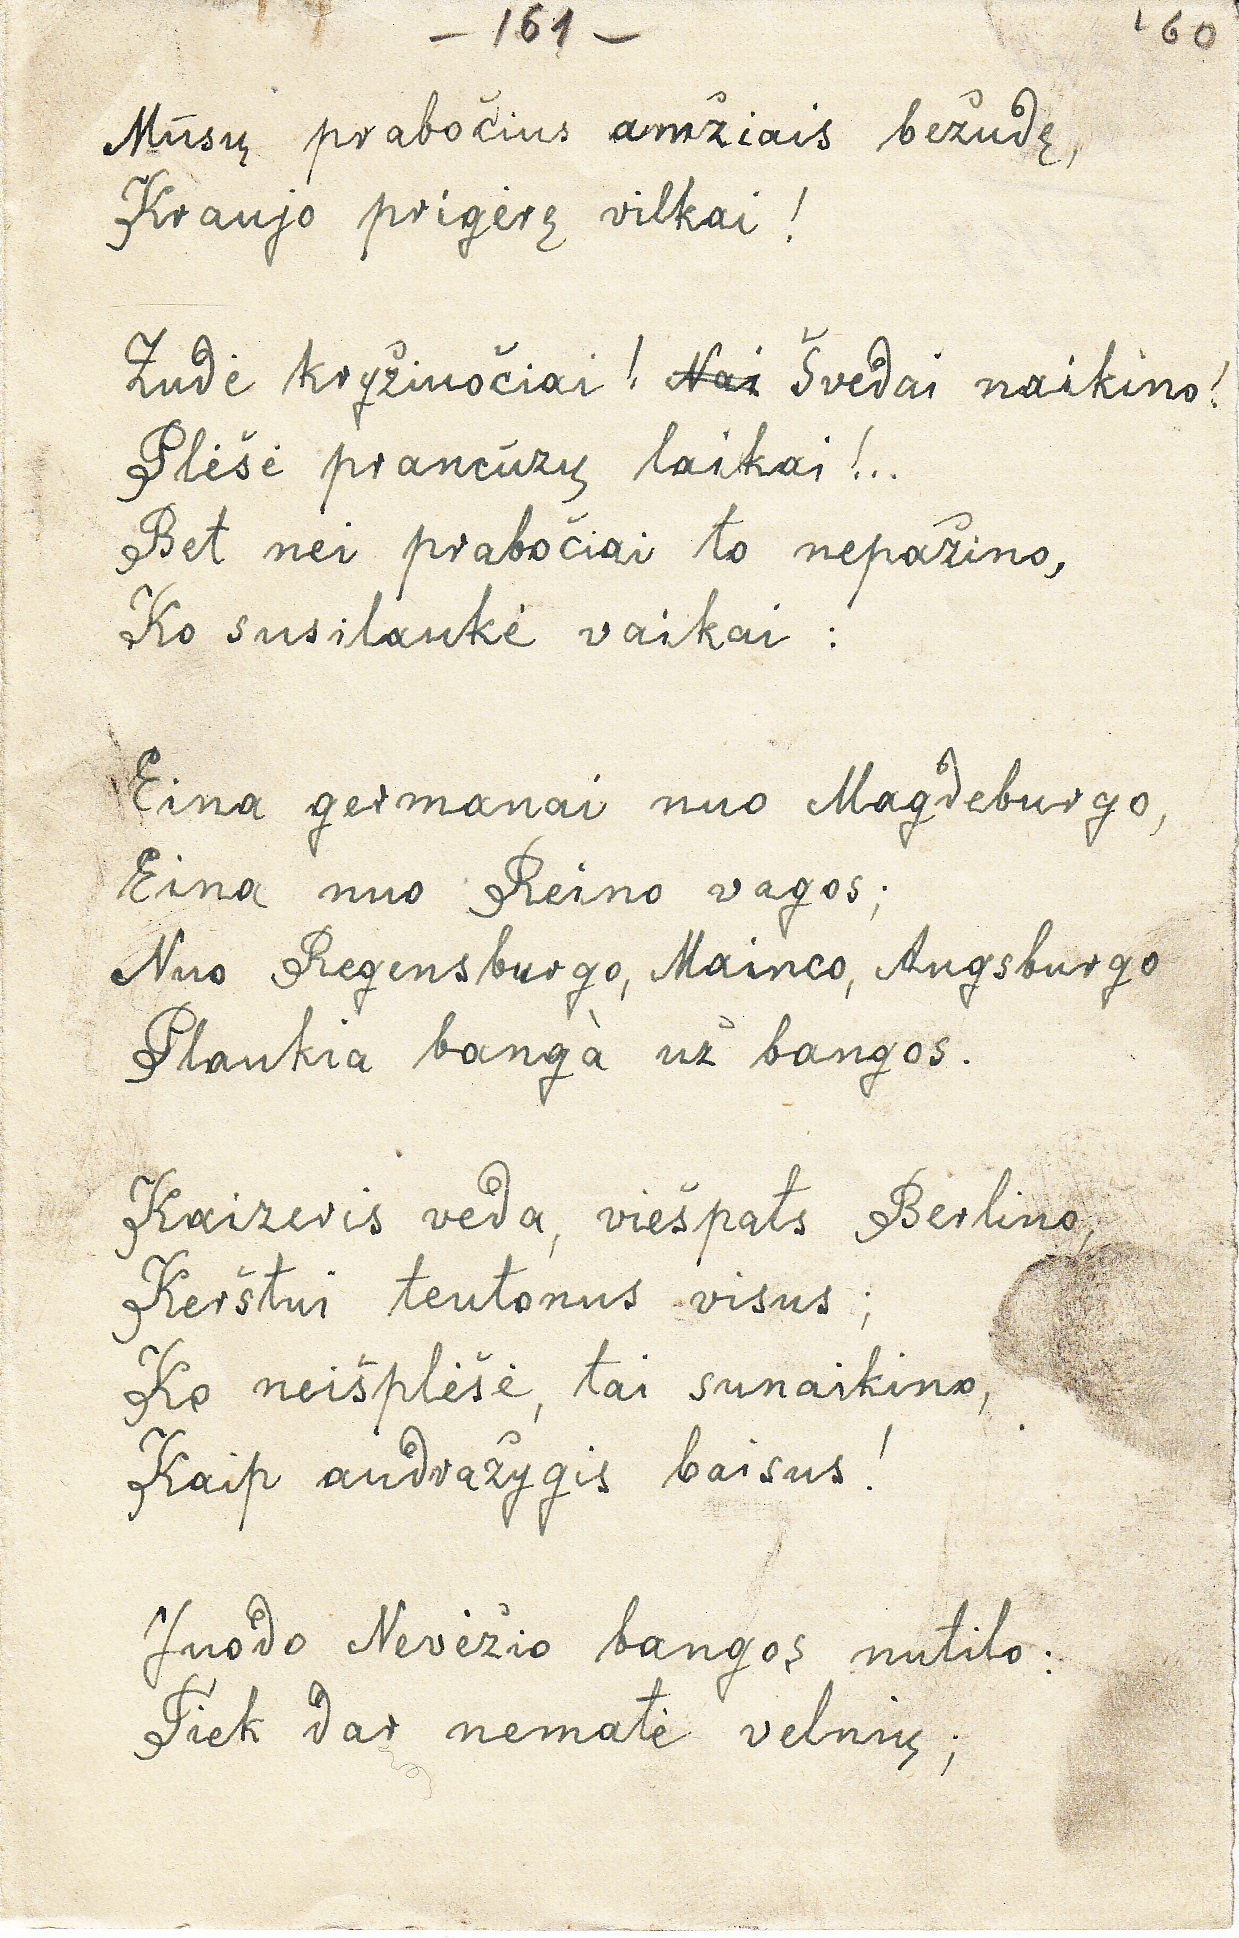 – 161 – 160
Mūsų prabočius amžiais bežudę,
Kraujo prigėrę vilkai!
Žudė kryžiuočiai! Nai Švedai naikino!
Plėšė prancūzų laikai!..
Bet nei prabočiai to nepažino,
Ko susilaukė vaikai:
Eina germanai nuo Magdeburgo,
Eina nuo Reino vagos;
Nuo Regensburgo, Mainco, Augsburgo
Plaukia bangà už bangos.
Kaizeris veda, viešpats Berlino,
Kerštui teutonus visus;
Ko neišplėšė, tai sunaikino,
Kaip audražygis baisus!
Juodo Nevėžio bangos nutilo:
Tiek dar nematė velnių;